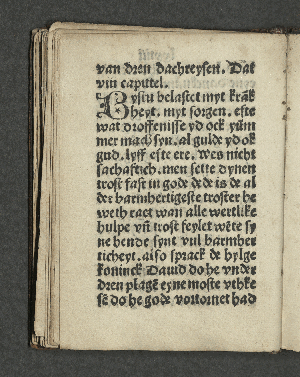 van dren dachreysen. Dat
viii capittel.
Bystu belastet myt kranck
heyt. myt sorgen. efte
wat droffenisse yd ock ym̄
mer mach syn. al gulde yd ok
gud. lyff efte ere. wes nicht
sachaftich. men sette dynen
trost fast in gode de de is de al
der barmhertigeste troster he
weth raet wan alle wertlike
hulpe vn̄ trost feylet wēte sy
ne hende synt vul barmher
ticheyt. also sprack de hylge
konинck Dauid do he vnder
dren plagē eyne moste vthke
sē do he gode vortornet had